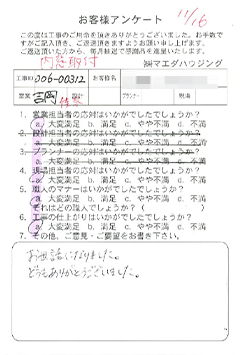 お客様アンケート
11/16
この度は工事のご用命を頂きありがとうございました。お手数で
すがご記入頂き、ご返送頂きますようお願い申し上げます。
ご返送頂いた方から、毎月抽選で感謝品を進呈いたします。
内窓取付
㈱マエダハウジング
工事ID 006-00312 お客様名
営業 吉岡 設計 プランナー 現場
1. 営業担当者の応対はいかがでしたでしょうか?
a. 大変満足 b. 満足 c. やや不満 d. 不満
2. 設計担当者の応対はいかがでしたでしょうか?
a. 大変満足 b. 満足 c. やや不満 d. 不満
3. プランナーの応対はいかがでしたでしょうか?
a. 大変満足 b. 満足 c. やや不満 d. 不満
4. 現場担当者の応対はいかがでしたでしょうか?
a. 大変満足 b. 満足 c. やや不満 d. 不満
5. 職人のマナーはいかがでしたでしょうか?
a. 大変満足 b. 満足 c. やや不満 d. 不満
それはどの職人でしょうか?( )
6. 工事の仕上がりはいかがでしたでしょうか?
a. 大変満足 b. 満足 c. やや不満 d. 不満
7. その他、ご意見・ご要望をお書き下さい。
お世話になりました。
どうもありがとうございました。